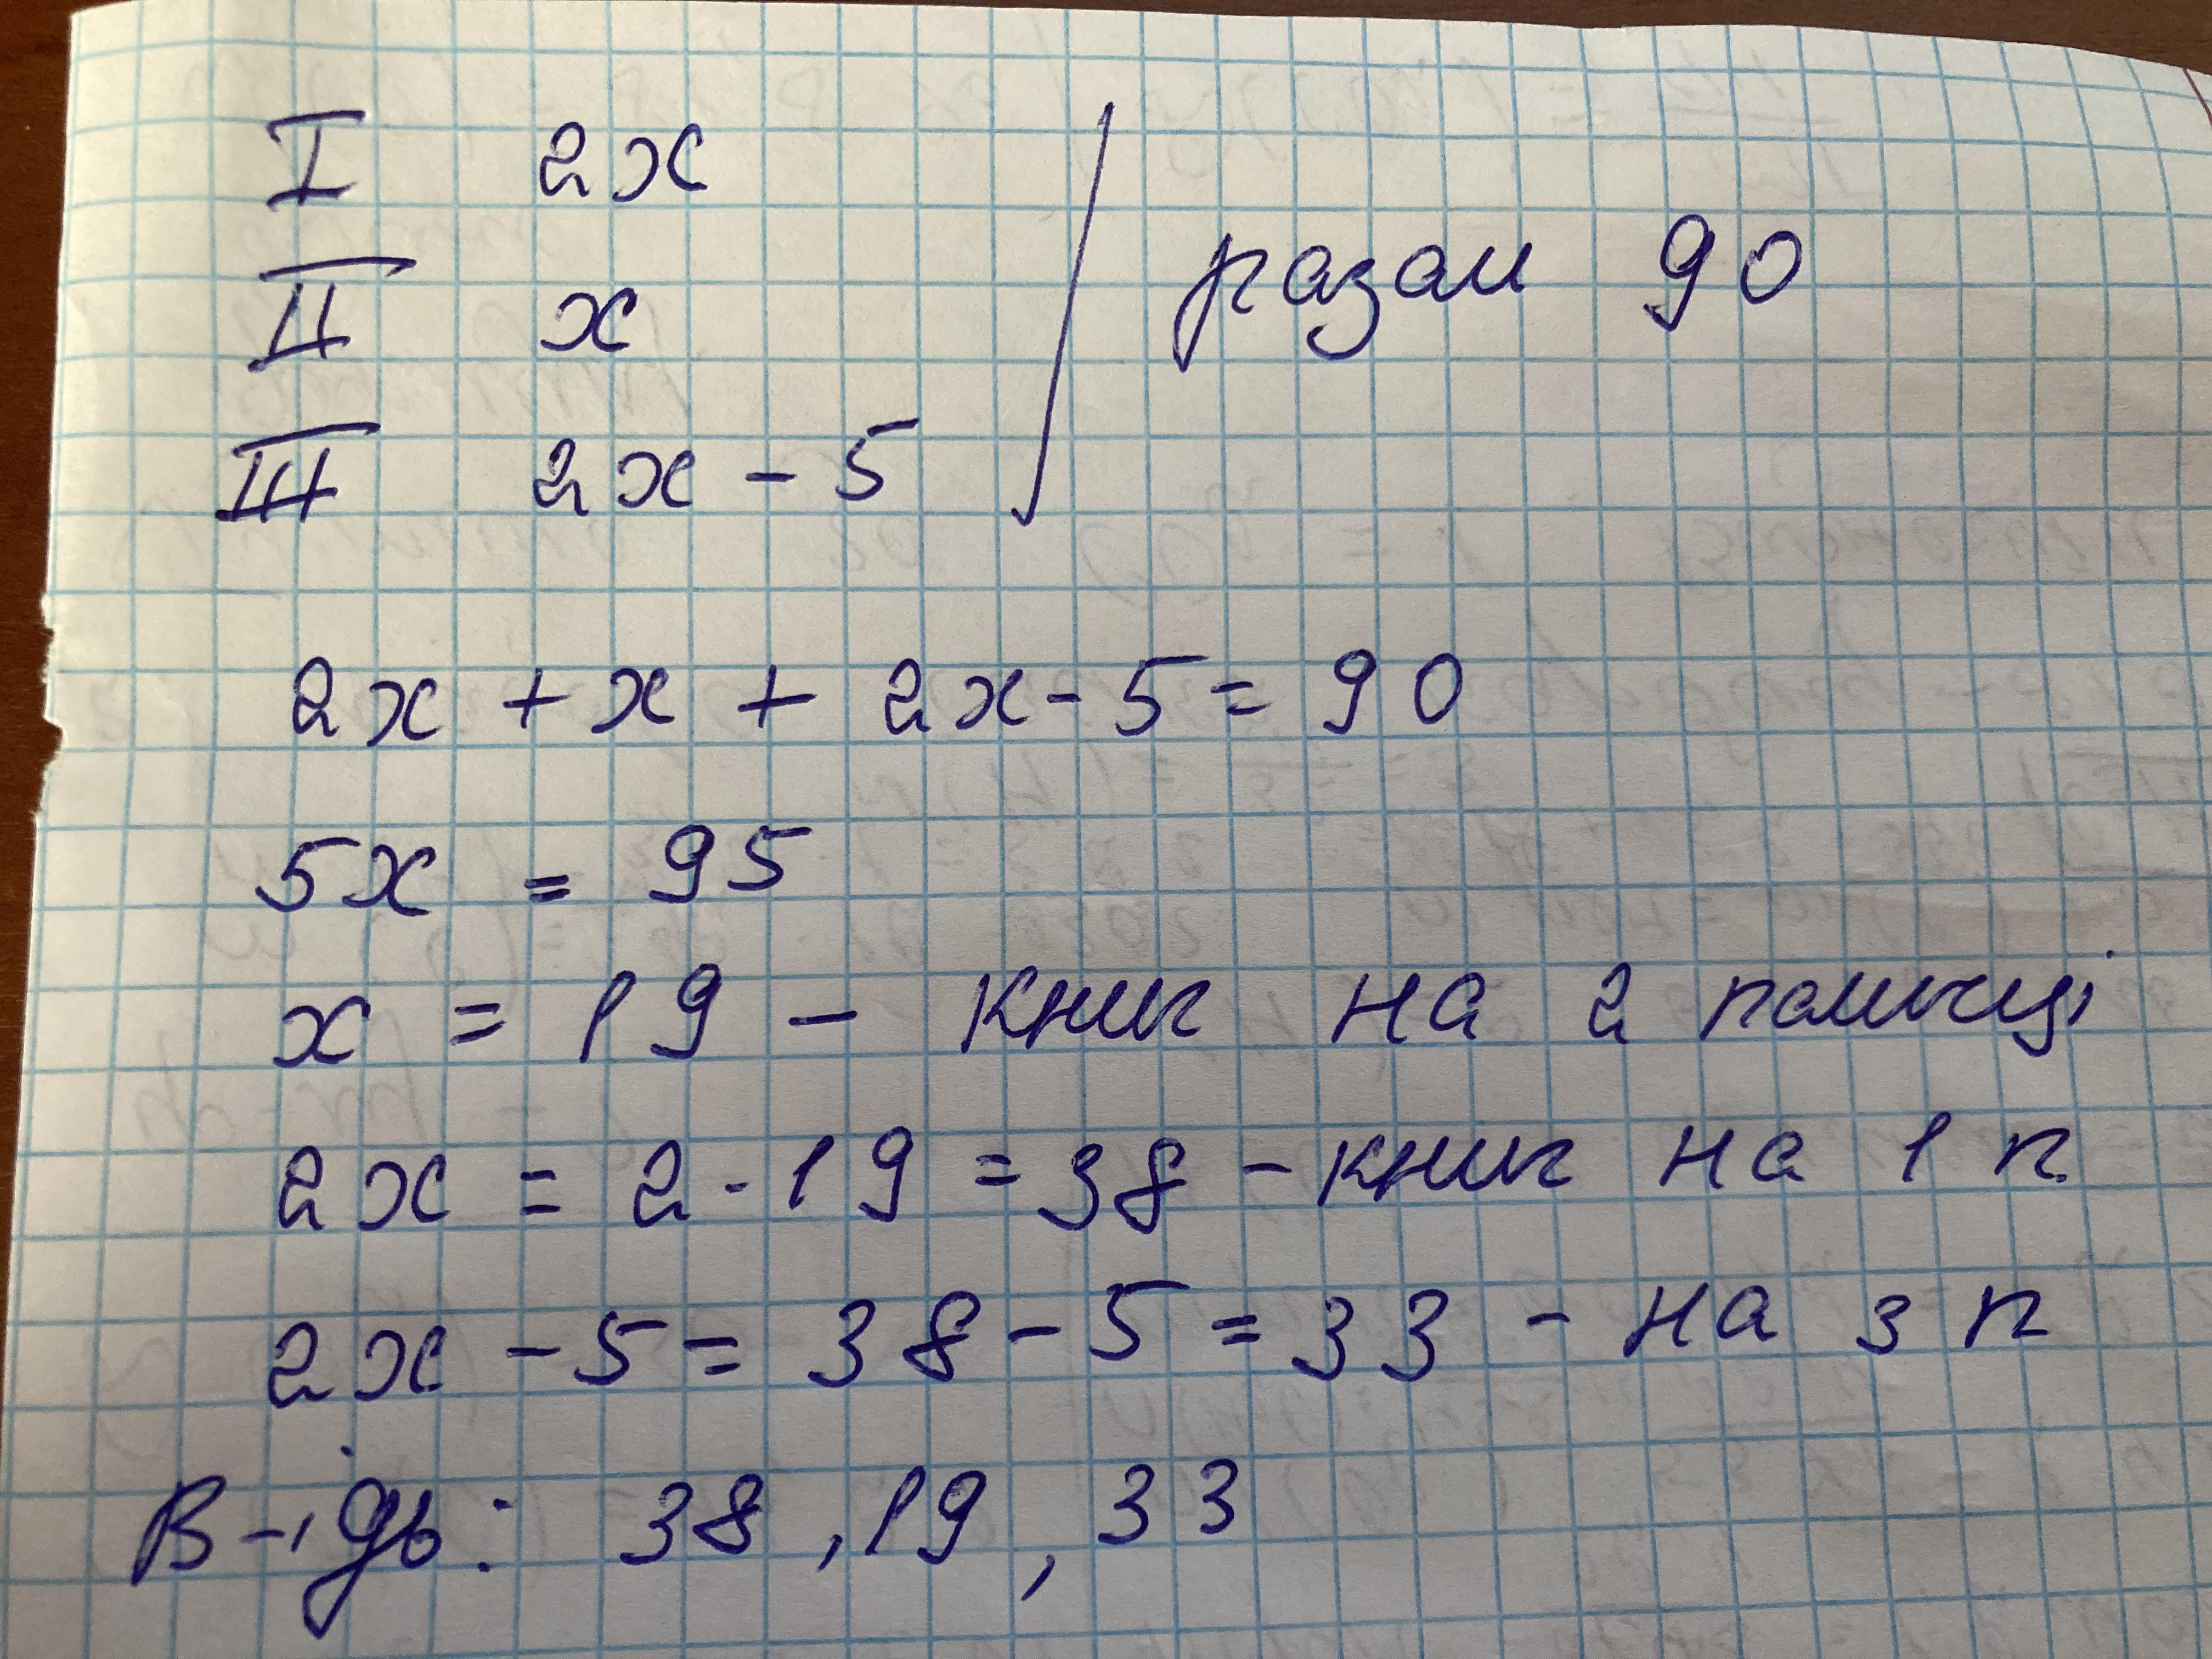 I 2x
II x
III 2x - 5
разом 90
2x + x + 2x - 5 = 90
5x = 95
x = 19 - книг на 2 полиці
2x = 2 · 19 = 38 - книг на 1 п
2x - 5 = 38 - 5 = 33 - на 3 п
В-ідь: 38, 19, 33